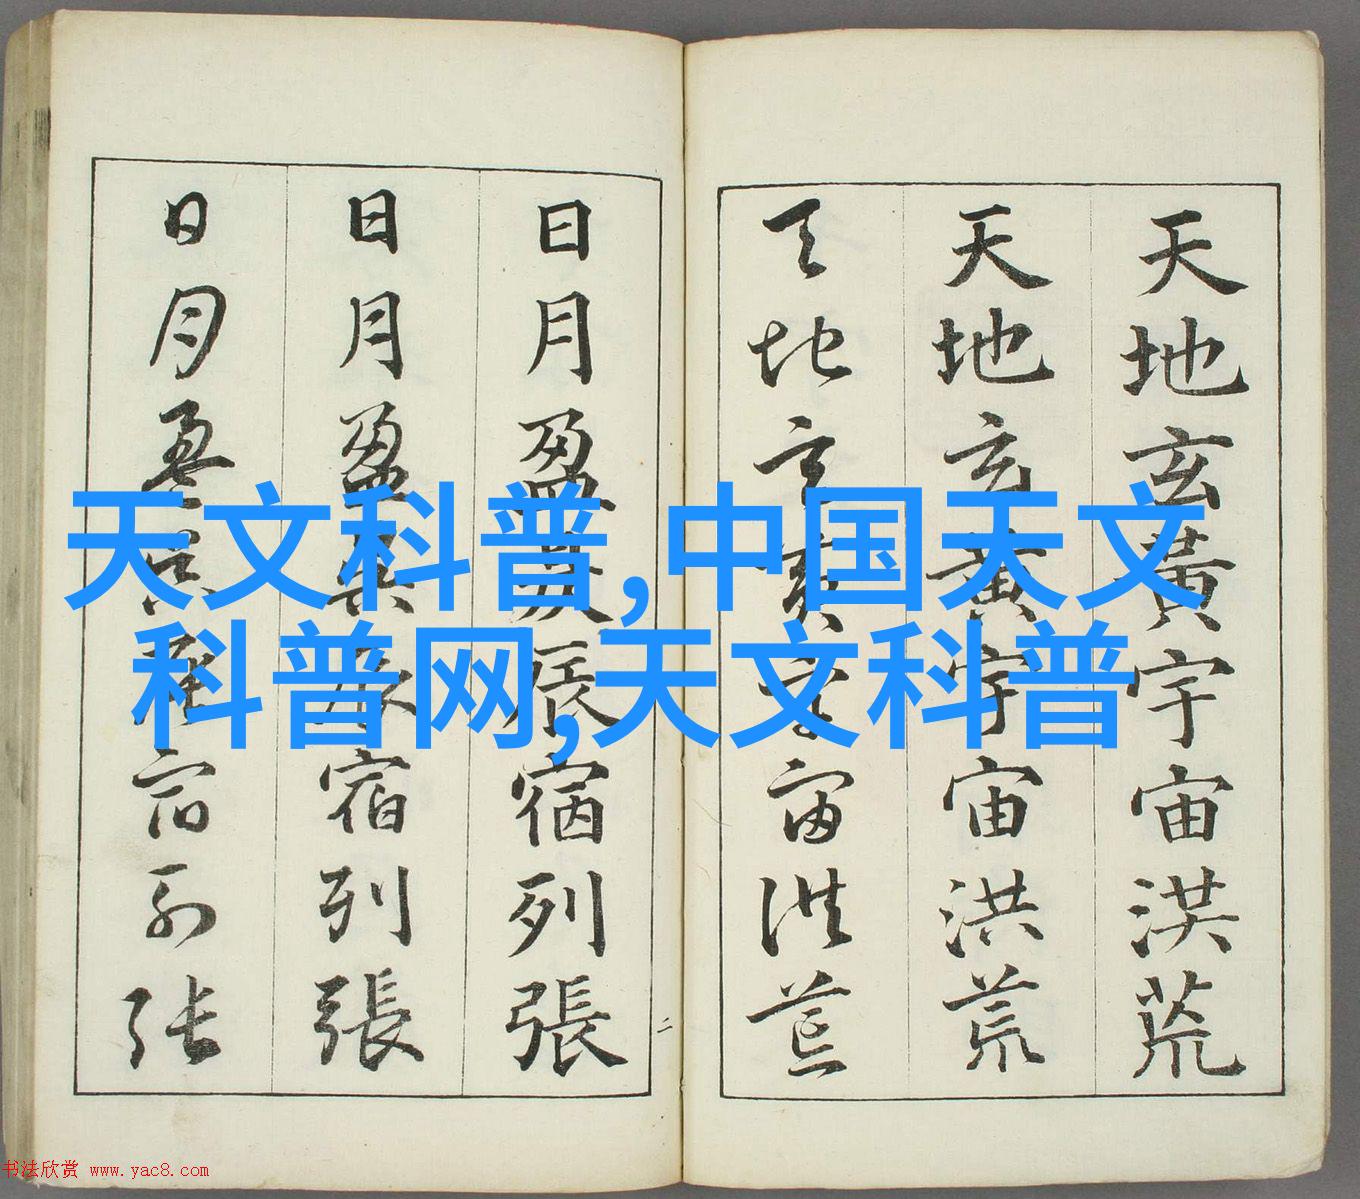 天地玄黃宇宙洪荒
天地玄黃宇宙洪荒
天地玄黃宇宙洪荒
二
日月盈昃辰宿列張
日月盈昃辰宿列張
日月盈昃辰宿列張
天文科普,中国天文
科普网,天文科普
书法欣赏 www.yac8.com